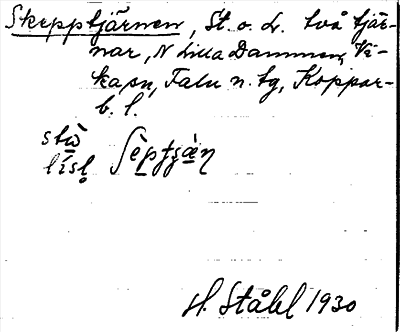 Skepptjärnen, St. o. L. två tjär-
nar, N Lilla Dammen, Vi-
kapn, Falu n. tg, Koppar-
b. l.
stὼ
lísl ʃèptʒæ̀n
H. Ståhl 1930